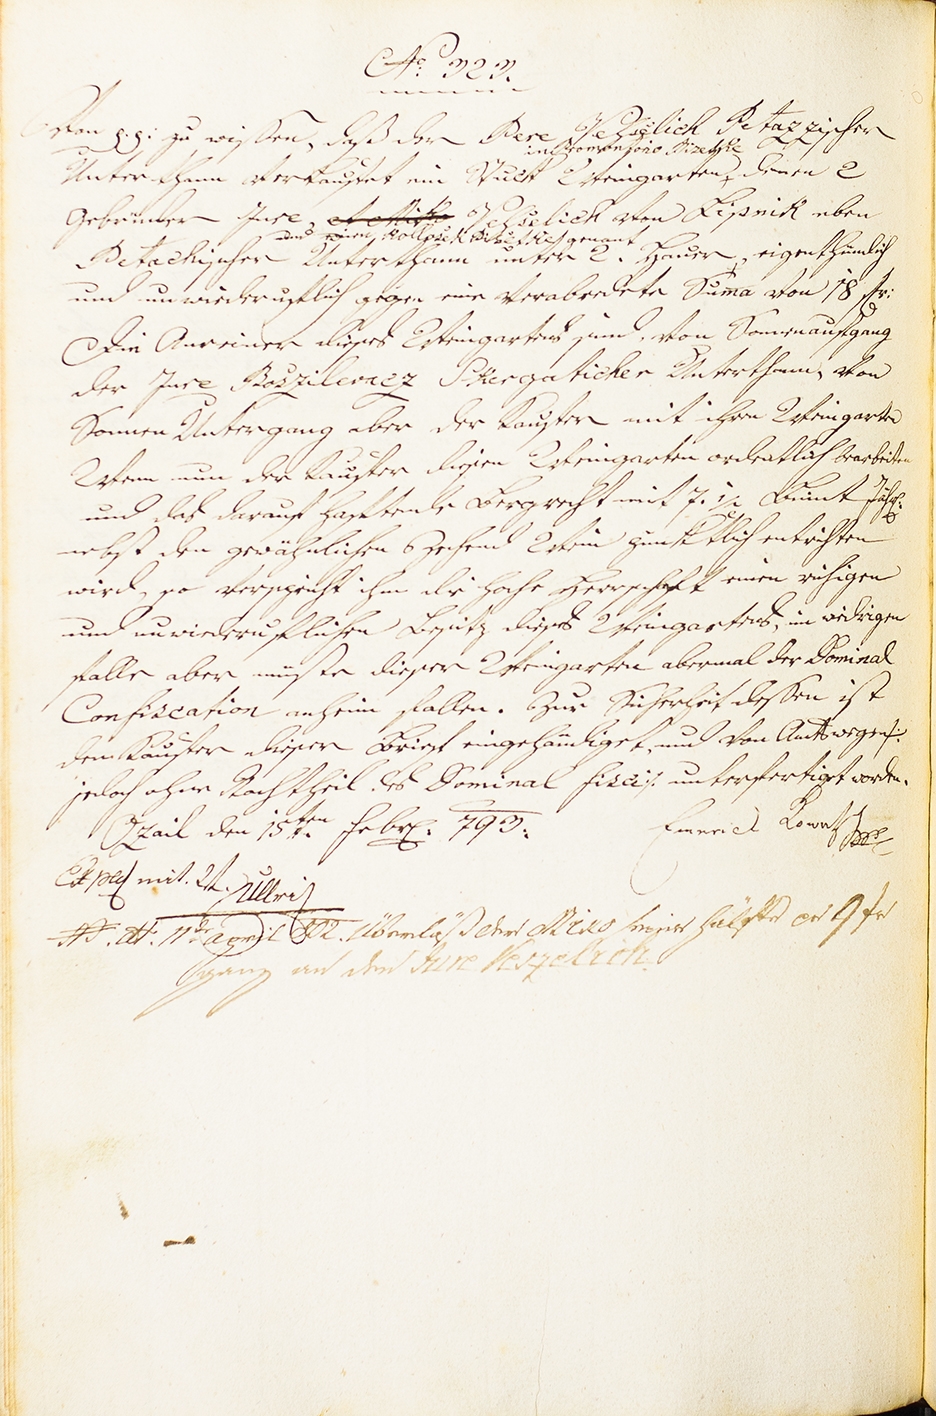 No 323.
Von p.p: zu wissen, daß der Pere Veßelich Petazzischer
in Promensono Bizelyke
Unterthann verkaufet ein Stuck Weingarten, denen 2
Gebrüder Jure, Veßelich von Lipnik eben
und einen, genant
Petachischer Unterthann unter 2. Hauer, eigenthümlich
und unwiederruflich gegen eine verabredete Suma von 18 fr:
Die Anreiner dieses Weingartens sind, von Sonnenaufgang
der Jure Boszilevacz Skergaticher Unterthann, von
Sonnen Untergang aber der Kaufer mit ihren Weingarten
Wenn nun der Kaufer diesen Weingarten ordentlich bearbeiten
und das darauf haftende Bergrecht mit 7. 1/2 Kimt jährl:
nebst den gewöhnlichen Zehend Wein pünktlich entrichten
wird, so verspricht ihm die Hoche Herrschaft einen ruhigen
und unwiederruflichen Besitz dieses Weingartens, im widrigen
falle aber müste dieser Weingarten abermal der Dominal
Confiscation anheim fallen. Zur Sicherheit dessen ist
dem Kaufer dieser Brief eingehändiget, und von Amtswegen
jedoch ohne Nachtheil des Dominal Fisci unterfertiget worden.
Ozail den 15ten Febr: 793.
Emerich Kowats
Exped mit. 2x. Ullrich
NB. Al. 11ten april 802. überläßt der Miko seine hälfte per 9 fr
ganz an den Jure Veszelich.